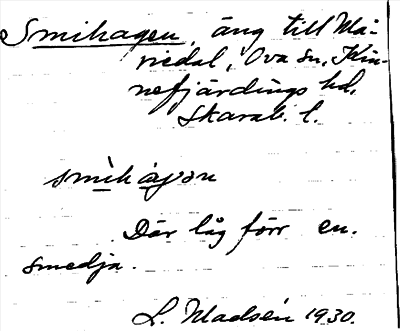 Smihagen, äng till Ma-
riedal, Ova sn, Kin-
nefjärdings hd,
Skarab. l.
smìhàgən
Där låg förr en
smedja.
L. Madsén 1930.